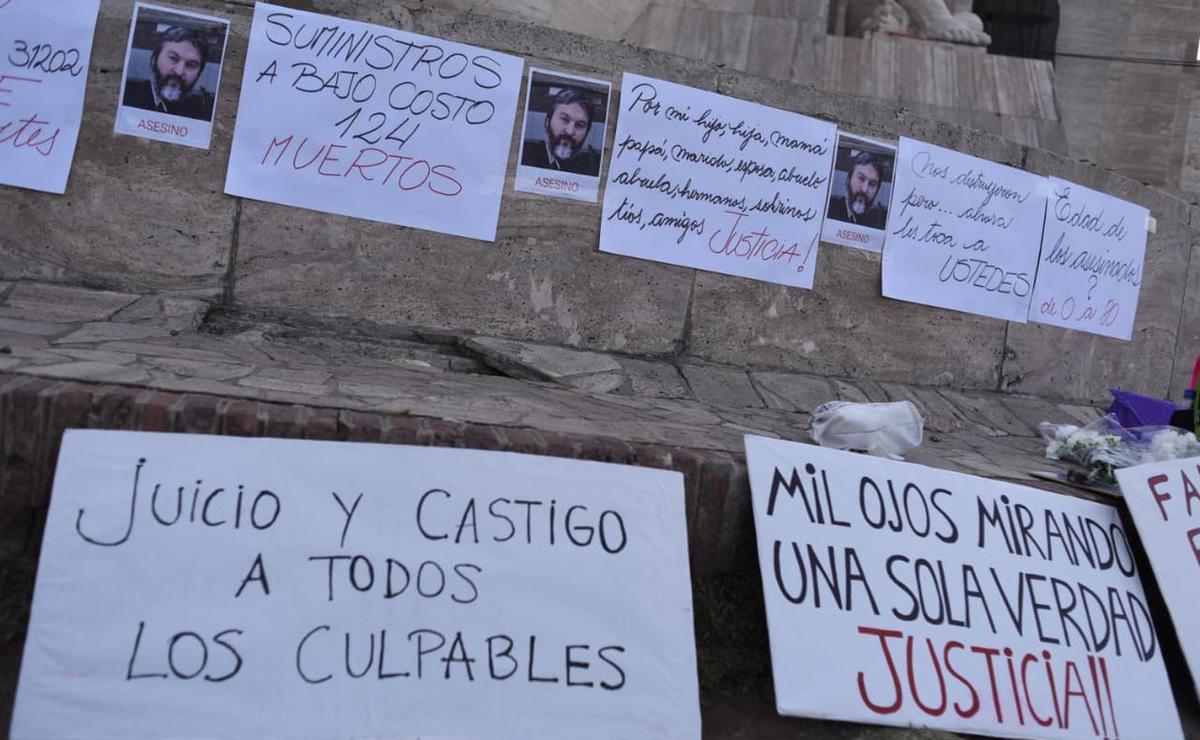 31202
ASESINO
SUMINISTROS
A BAJO COSTO
124
MUERTOS
ASESINO
Por mi hijo, hija, mamá
papá, marido, esposa, abuelo
abuela, hermanos, sobrinos
tíos, amigos JUSTICIA!
ASESINO
Nos destruyeron
pero... ahora
les toca a
USTEDES
Edad de
los asesinados
?
de 0 a 80
JUICIO Y CASTIGO
A TODOS
LOS CULPABLES
MIL OJOS MIRANDO
UNA SOLA VERDAD
JUSTICIA!!